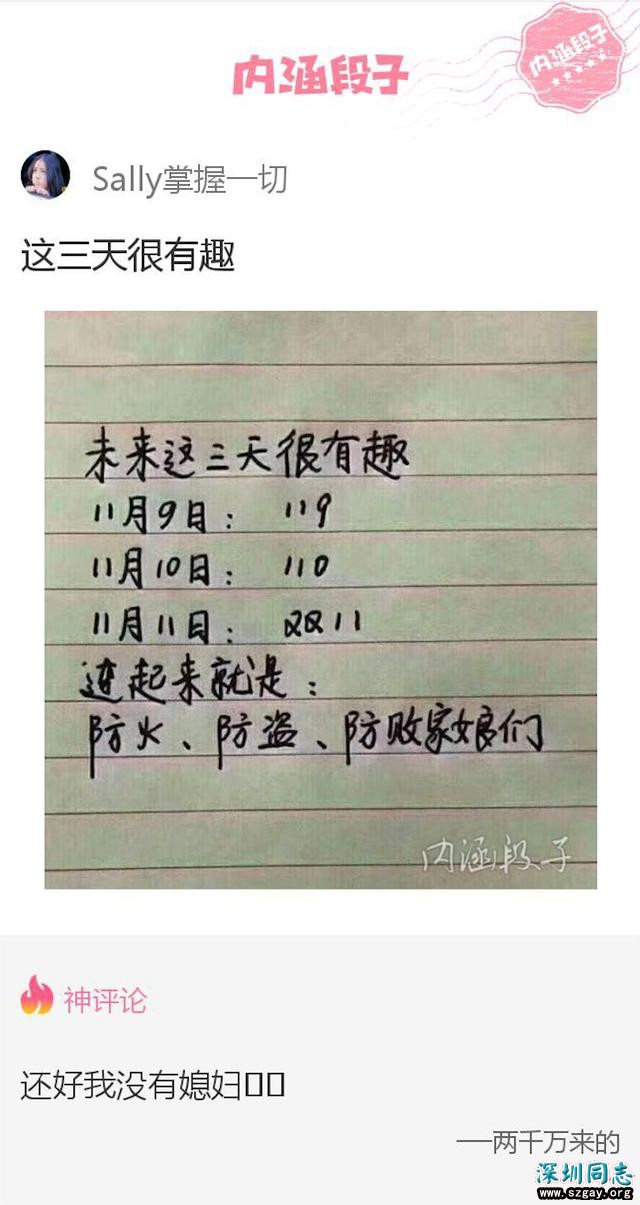 内涵段子
内涵段子
Sally掌握一切
这三天很有趣
未来这三天很有趣
11月9日： 119
11月10日： 110
11月11日： 双11
连起来就是：
防火、防盗、防败家娘们
内涵段子
神评论
还好我没有媳妇
──两千万来的
深圳同志
www.szgay.org